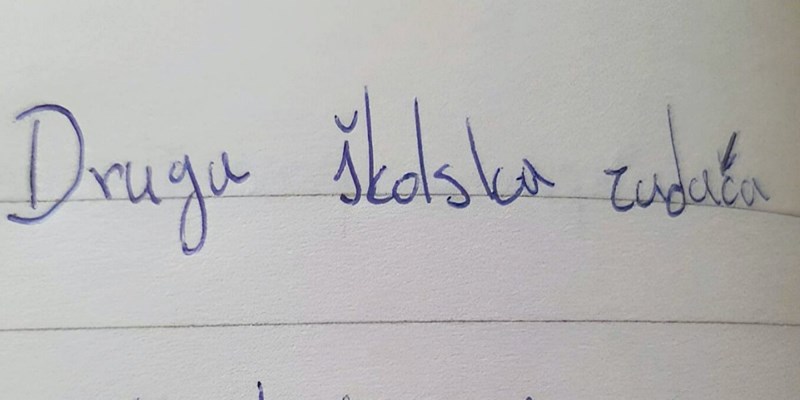 Druga školska zadaća